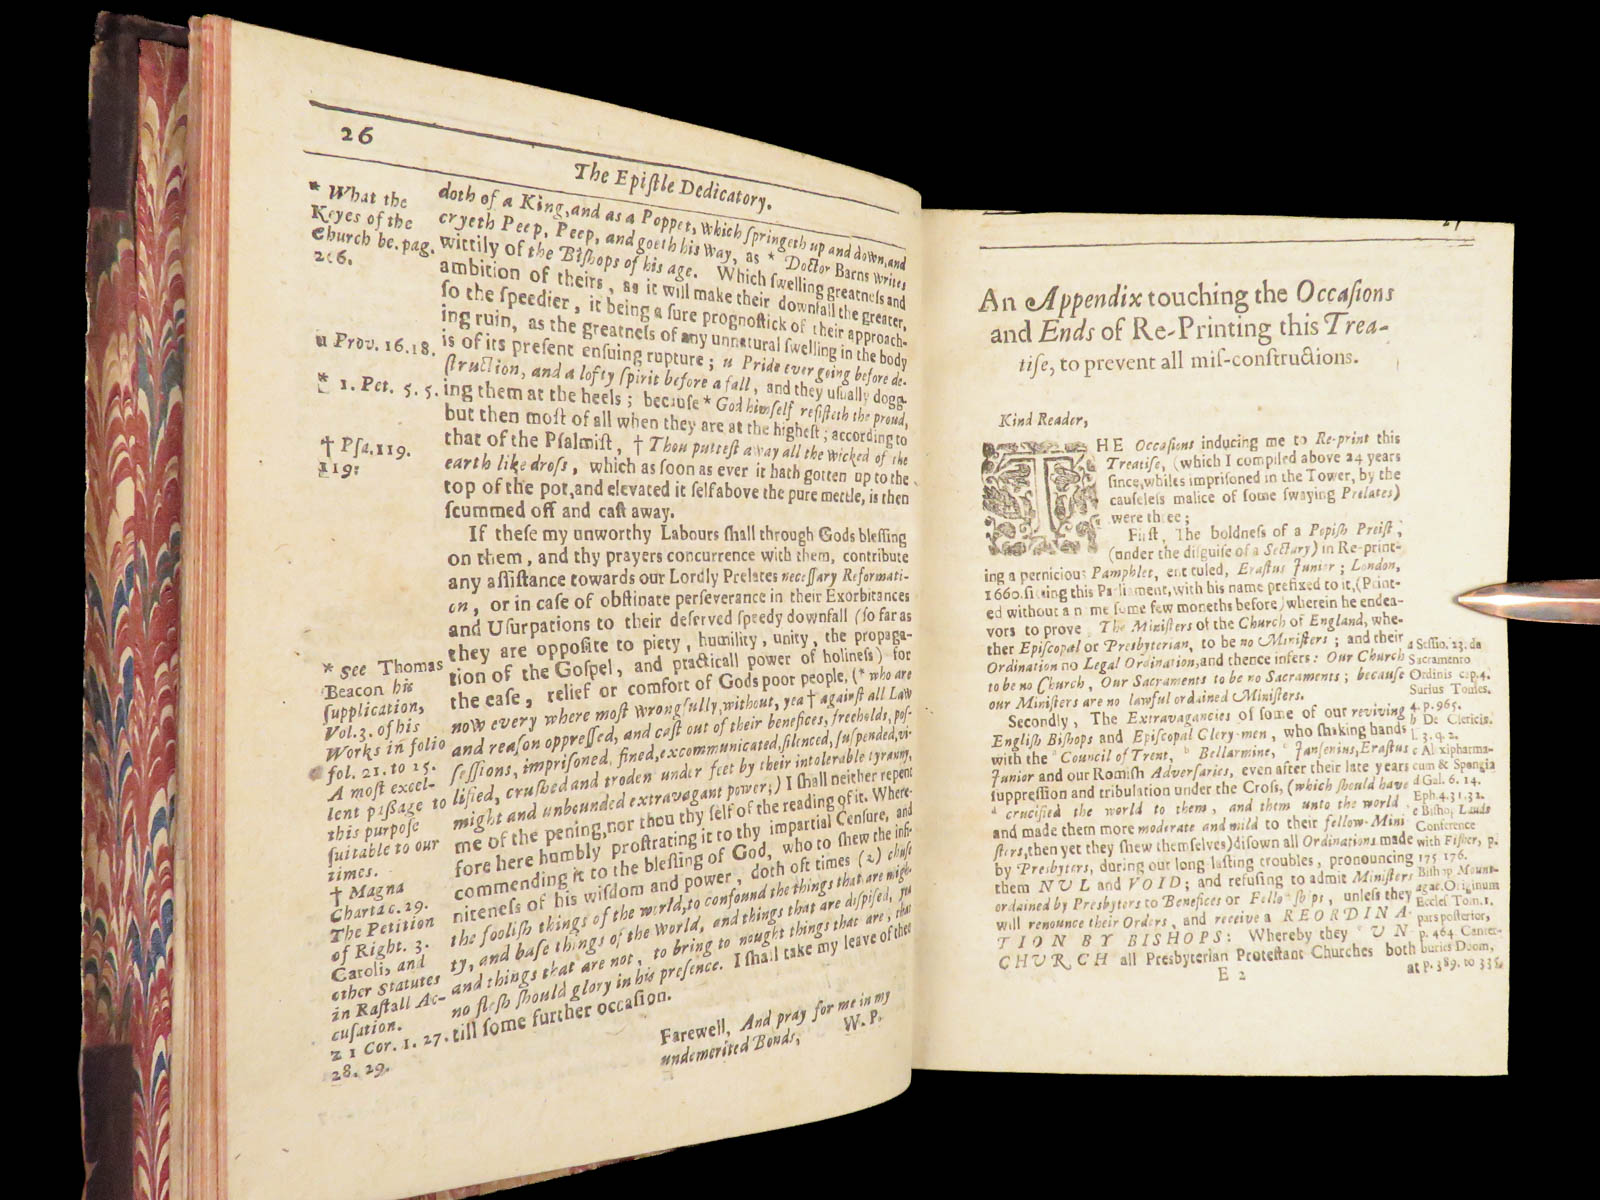 26
The Epiſtle Dedicatory.
* What the
Keyes of the
Church be. pag.
266.
u Prov. 16.18.
* 1. Pet. 5. 5.
† Pſa. 119.
119:
* See Thomas
Beacon his
ſupplication,
Vol. 3. of his
Works in folio
fol. 21. to 25.
A moſt excel-
lent paſſage to
this purpoſe
ſuitable to our
times.
† Magna
Charta c. 29.
The Petition
of Right. 3.
Caroli, and
other Statutes
in Raſtall Ac-
cuſation.
z 1 Cor. 1. 27.
28. 29.
doth of a King, and as a Poppet, which ſpringeth up and down, and
cryeth Peep, Peep, and goeth his way, as * Doctor Barns writes
wittily of the Biſhops of his age. Which ſwelling greatneſs and
ambition of theirs, as it will make their downfall the greater,
ſo the ſpeedier, it being a ſure prognoſtick of their approach-
ing ruin, as the greatneſs of any unnatural ſwelling in the body
is of its preſent enſuing rupture; u Pride ever going before de-
ſtruction, and a lofty ſpirit before a fall, and they uſually dogg-
ing them at the heels; becauſe * God himſelf reſiſteth the proud,
but then moſt of all when they are at the higheſt; according to
that of the Pſalmiſt, † Thou putteſt away all the wicked of the
earth like droſs, which as ſoon as ever it hath gotten up to the
top of the pot, and elevated it ſelf above the pure mettle, is then
ſcummed off and caſt away.
If theſe my unworthy Labours ſhall through Gods bleſſing
on them, and thy prayers concurrence with them, contribute
any aſſiſtance towards our Lordly Prelates neceſſary Reformati-
on, or in caſe of obſtinate perſeverance in their Exorbitances
and Uſurpations to their deſerved ſpeedy downfall (ſo far as
they are oppoſite to piety, humility, unity, the propaga-
tion of the Goſpel, and practicall power of holineſs) for
the eaſe, relief or comfort of Gods poor people, (* who are
now every where moſt wrongfully, without, yea † againſt all Law
and reaſon oppreſſed, and caſt out of their benefices, freeholds, poſ-
ſeſſions, impriſoned, fined, excommunicated, ſilenced, ſuſpended, vi-
lified, cruſhed and troden under feet by their intolerable tyranny,
might and unbounded extravagant power;) I ſhall neither repent
me of the pening, nor thou thy ſelf of the reading of it. Where-
fore here humbly proſtrating it to thy impartial Cenſure, and
commending it to the bleſſing of God, who to ſhew the infi-
niteneſs of his wiſdom and power, doth oft times (z) chuſe
the fooliſh things of the world, to confound the things that are migh-
ty, and baſe things of the World, and things that are diſpiſed, yea
and things that are not, to bring to nought things that are, that
no fleſh ſhould glory in his preſence. I ſhall take my leave of thee
till ſome further occaſion.
Farewell, And pray for me in my
undemerited Bonds,
W. P.
27
An Appendix touching the Occaſions
and Ends of Re-Printing this Trea-
tiſe, to prevent all miſ-conſtructions.
Kind Reader,
THE Occaſions inducing me to Re-print this
Treatiſe, (which I compiled above 24 years
ſince, whiles impriſoned in the Tower, by the
cauſeleſs malice of ſome ſwaying Prelates)
were three;
Firſt, The boldneſs of a Popiſh Preiſt,
(under the diſguiſe of a Sectary) in Re-print-
ing a pernicious Pamphlet, entituled, Eraſtus Junior; London,
1660. ſitting this Parliament, with his name prefixed to it, (Print-
ed without a name ſome few moneths before) wherein he endea-
vors to prove, The Miniſters of the Church of England, whe-
ther Epiſcopal or Presbyterian, to be no Miniſters; and their
Ordination no Legal Ordination, and thence infers: Our Church
to be no Church, Our Sacraments to be no Sacraments; becauſe
our Miniſters are no lawful ordained Miniſters.
Secondly, The Extravagancies of ſome of our reviving
Engliſh Biſhops and Epiſcopal Clery-men, who ſhaking hands
with the a Council of Trent, b Bellarmine, c Janſenius, Eraſtus
Junior and our Romiſh Adverſaries, even after their late years
ſuppreſſion and tribulation under the Croſs, (which ſhould have
d crucified the world to them, and them unto the world
and made them more moderate and mild to their fellow-Mini
ſters, then yet they ſhew themſelves) diſown all Ordinations made
by Presbyters, during our long-laſting troubles, pronouncing
them NUL and VOID; and refuſing to admit Miniſters
ordained by Presbyters to Benefices or Fellowſhips, unleſs they
will renounce their Orders, and receive a REORDINA-
TION BY BISHOPS: Whereby they e UN-
CHURCH all Presbyterian Proteſtant Churches both
E 2
at
a Seſſio. 23. de
Sacramento
Ordinis cap. 4.
Surius Tomes.
4. p. 965.
b De Clericis.
l. 3. q. 2.
c Alexipharma-
cum & Spongia
d Gal. 6. 14.
Eph. 4. 31. 32.
e Biſhop Lauds
Conference
with Fiſher, p.
175 176.
Biſhop Mount-
ague. Originum
Eccleſ. Tom. 1.
pars poſterior,
p. 464 Canter-
buries Doom,
p. 389. to 338.